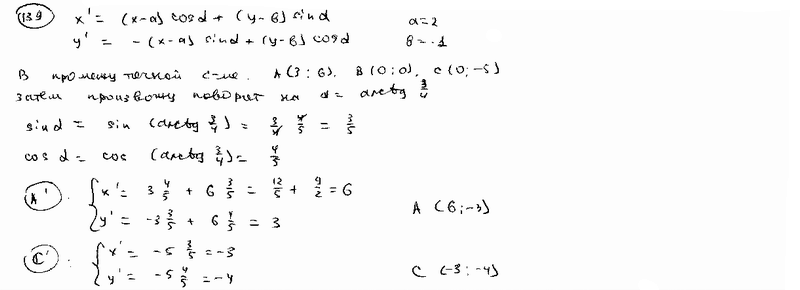 139 x' = (x-a) cos α + (y-в) sin α    a=2
y' = -(x-a) sin α + (y-в) cos α    в=-1
В промежуточной с-ме. A(3; 6), B(0;0), C(0;-5)
затем произвожу поворот на α = arctg 3/4
sin α = sin (arctg 3/4) = 3/4 · 4/5 = 3/5
cos α = cos (arctg 3/4) = 4/5
A' . { x' = 3 4/5 + 6 3/5 = 12/5 + 9/2 = 6
y' = -3 3/5 + 6 4/5 = 3    A (6;-3)
C' . { x' = -5 3/5 = -3
y' = -5 4/5 = -4    C (-3; -4)